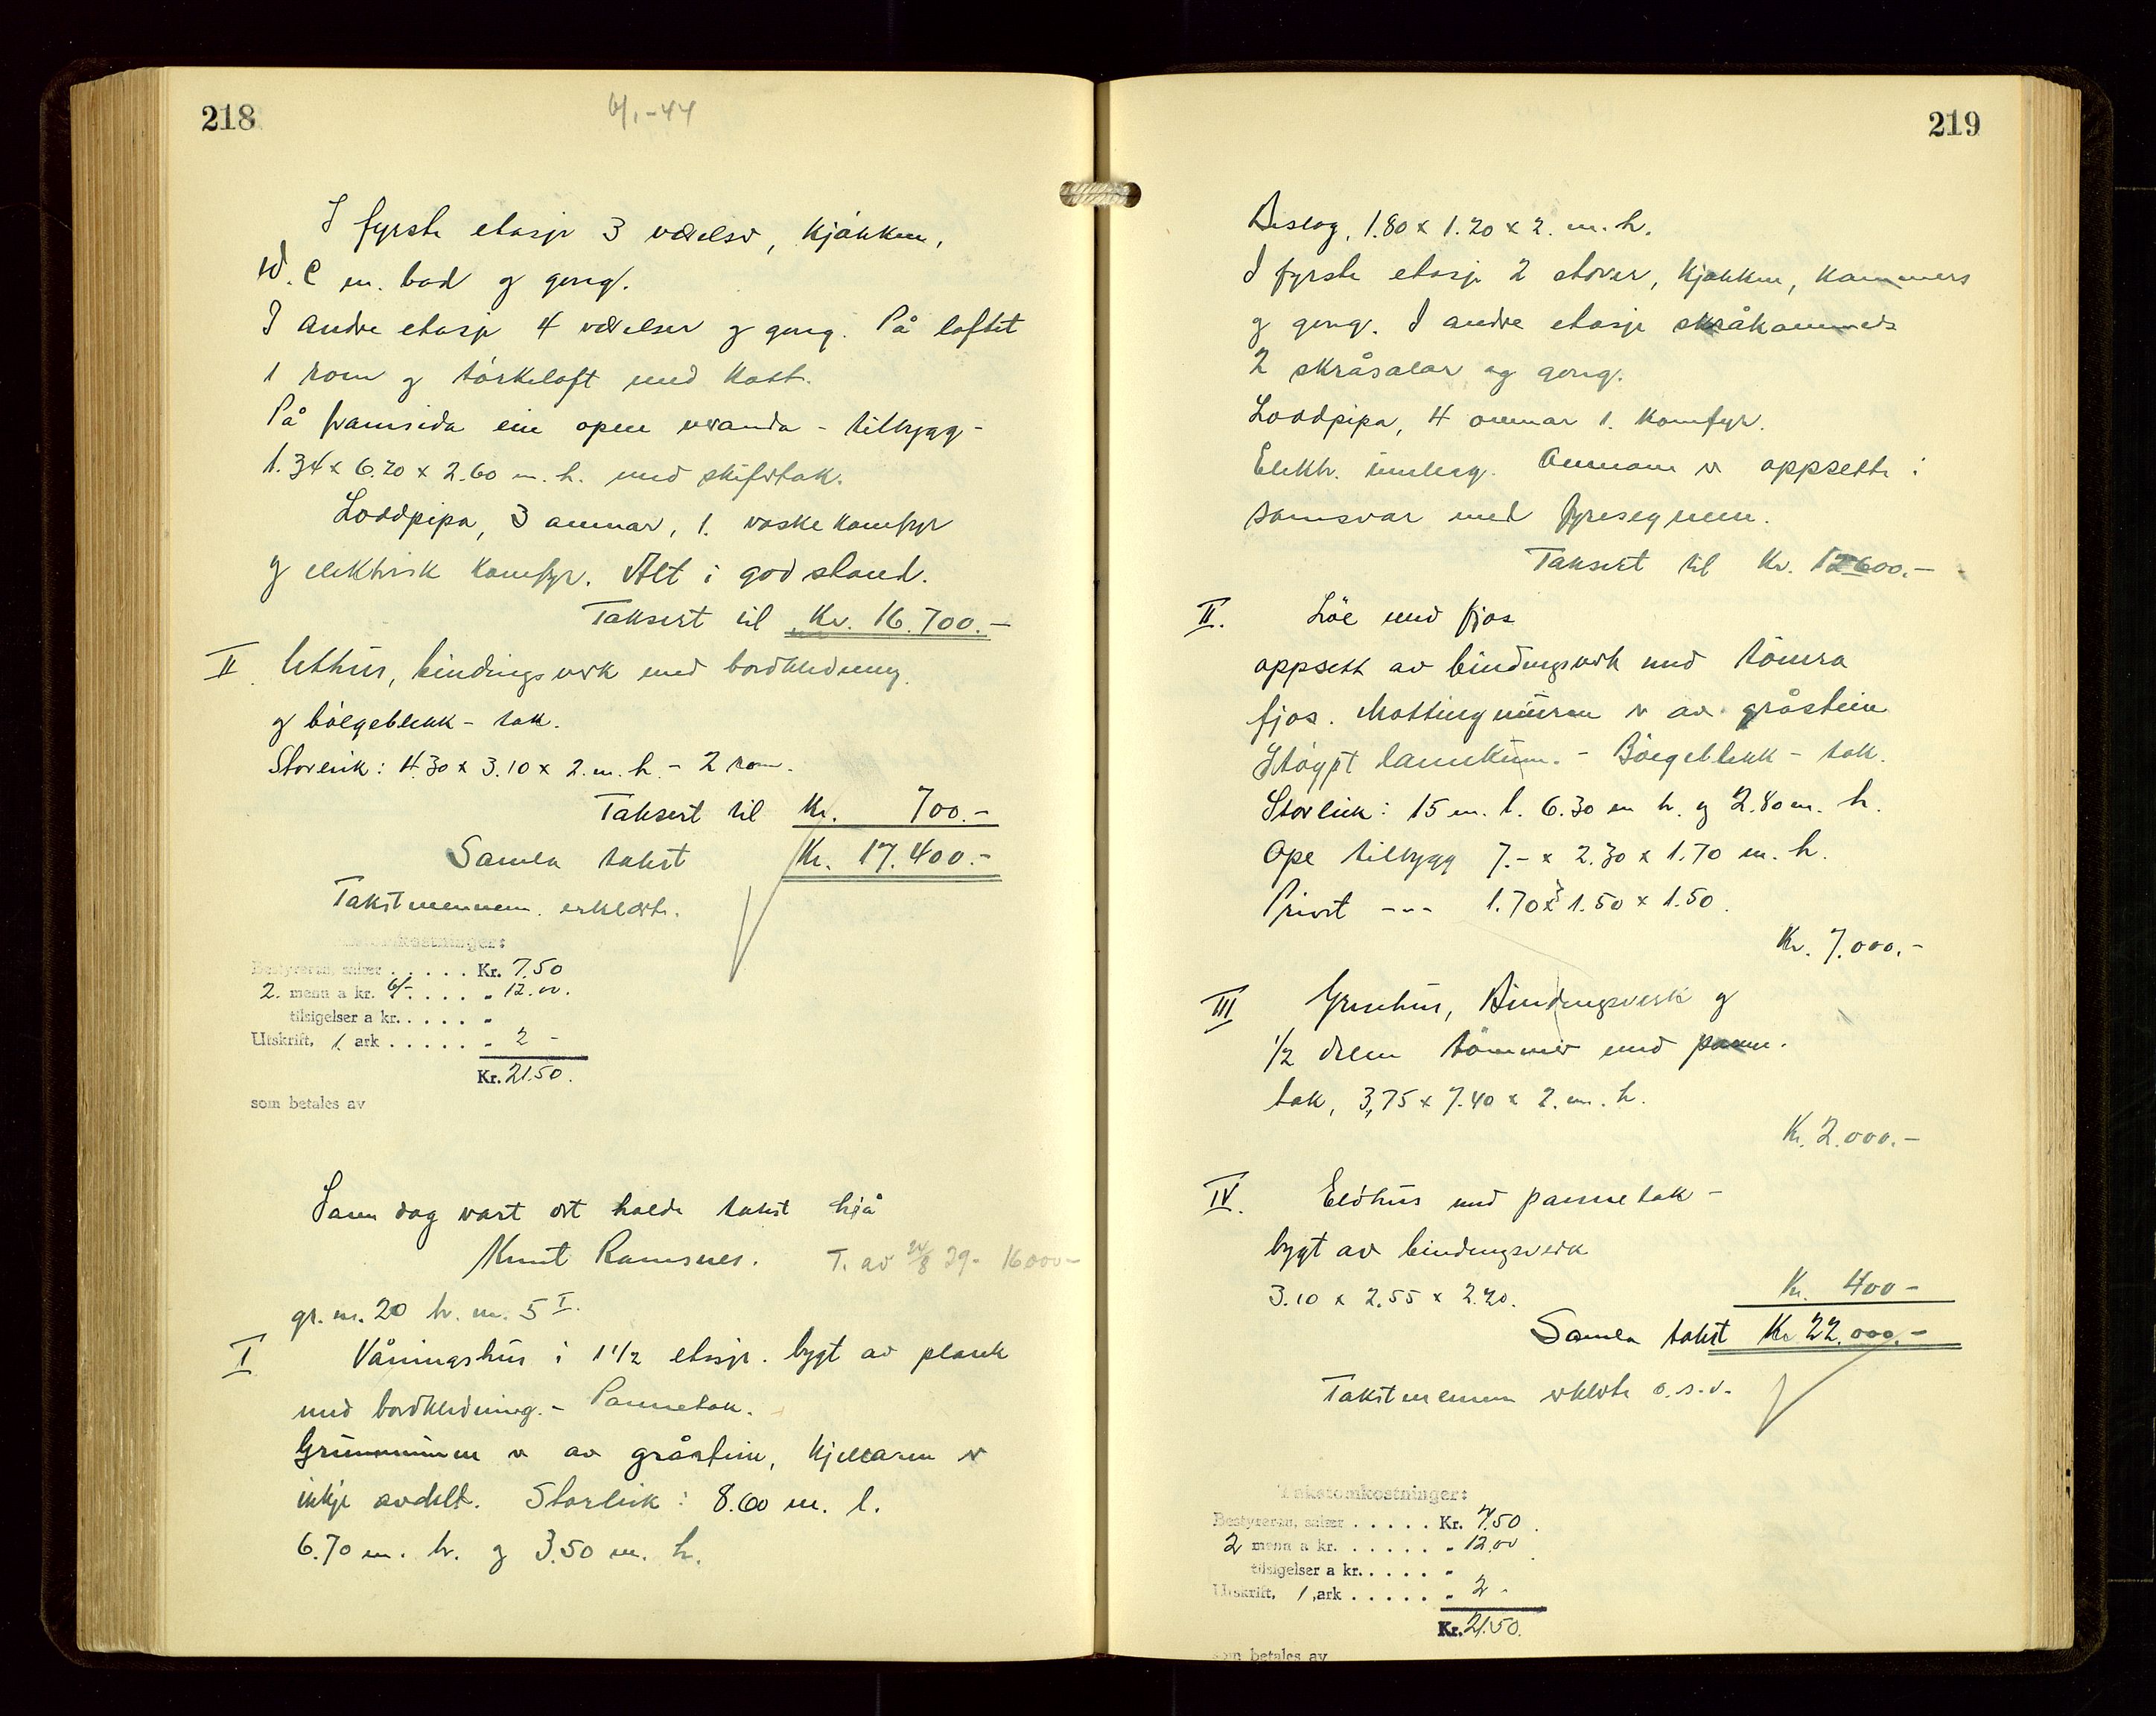 218
6/1-44
I fyrste etasje 3 værelser, kjøkken,
W.C m. bad og gong.
I andre etasje 4 værelser og gong. På loftet
1 rom og tørkeloft med kott.
På framsida ein open veranda - tilbygg -
1.34 x 6.20 x 2.60 m. h. med skifertak.
Loddpipa, 3 omnar, 1. vaskekomfyr
og elektrisk komfyr. Alt i god stand.
Taksert til Kr. 16.700.-
II. Uthus, bindingsverk med bordkledning
og bølgeblekk-tak.
Storleik: 4.30 x 3.10 x 2. m. h. - 2 rom.
Taksert til Kr. 700.-
Samla takst Kr. 17.400.-
Takstmennene erklærte.
Takstomkostninger:
Bestyreren, salær ..... Kr. 7.50
2. menn a kr. 6/- .... " 12.00.
tilsigelser a kr. .... "
Utskrift, 1. ark ..... " 2 -
Kr. 21.50.
som betales av
Same dag vart det halde takst hjå
Knut Ramsnes. T. av 24/8 29- 16000-
gr. nr. 20 br. nr. 5 I.
I Våningshus i 1 1/2 etasje. bygt av plank
med bordkledning. - Pannetak.
Grunnmuren er av gråstein, kjellaren er
inkje avdelt. Storleik: 8.60 m. l.
6.70 m. br. og 3.50 m. h.
219
Bislag, 1.80 x 1.20 x 2. m. h.
I fyrste etasje 2 stover, kjøkken, kammers
og gong. I andre etasje skråkammers
2 skråsalar og gong.
Loddpipa, 4 omnar 1. komfyr.
Elektr. innlegg. Omnane er oppsette i
samsvar med fyresegnene.
Taksert til Kr. 12600.-
II. Løe med fjos
oppsett av bindingsverk med tømra
fjos. Møttingmuren er av gråstein
Støypt landkum. - Bølgeblekk-tak.
Storleik: 15 m. l. 6.30 m br. og 2.80 m. h.
Ope tilbygg 7.- x 2.30 x 1.70 m. h.
Privet --- 1.70 x 1.50 x 1.50.
Kr. 7.000.-
III Grisehus, Bindingsverk og
1/2 delen tømmer med panne.
tak, 3,75 x 7.40 x 2. m. h.
Kr. 2.000.-
IV. Eldhus med pannetak -
bygt av bindingsverk
3.10 x 2.55 x 2.20.
Kr. 400-
Samla takst Kr 22.000.-
Takstmennene erklærte o.s.v.
Takstomkostninger:
Bestyreren, salær ..... Kr. 7.50.
2 menn a kr. ...... " 12.00
tilsigelser a kr. .... "
Utskrift, 1 ark ..... " 2 -
Kr. 21.50.
som betales av